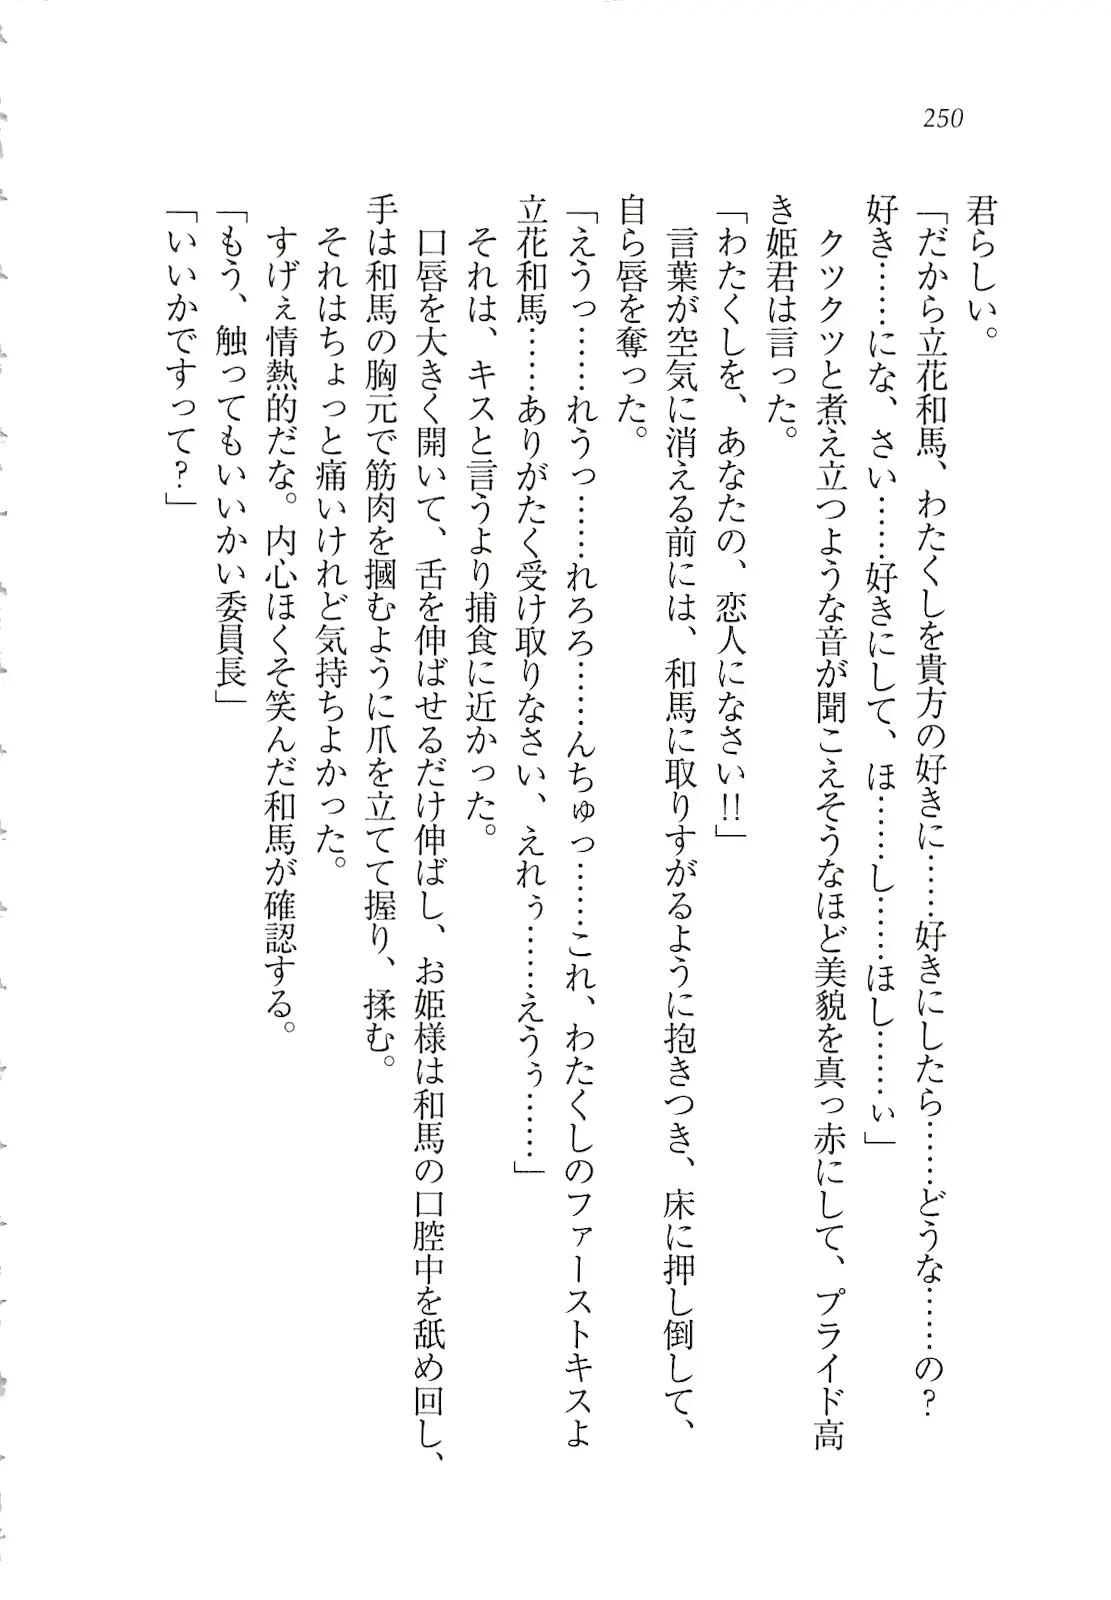 250
君らしい。
「だから立花和馬、わたくしを貴方の好きに……好きにしたら……どうな……の？
好き……にな、さい……好きにして、ほ……し……ほし……ぃ」
クツクツと煮え立つような音が聞こえそうなほど美貌を真っ赤にして、プライド高
き姫君は言った。
「わたくしを、あなたの、恋人になさい!!」
言葉が空気に消える前には、和馬に取りすがるように抱きつき、床に押し倒して、
自ら唇を奪った。
「えうっ……れうっ……れろろ……んちゅっ……これ、わたくしのファーストキスよ
立花和馬……ありがたく受け取りなさい、えれぅ……えうぅ……」
それは、キスと言うより捕食に近かった。
口唇を大きく開いて、舌を伸ばせるだけ伸ばし、お姫様は和馬の口腔中を舐め回し、
手は和馬の胸元で筋肉を摑むように爪を立てて握り、揉む。
それはちょっと痛いけれど気持ちよかった。
すげぇ情熱的だな。内心ほくそ笑んだ和馬が確認する。
「もう、触ってもいいかい委員長」
「いいかですって？」